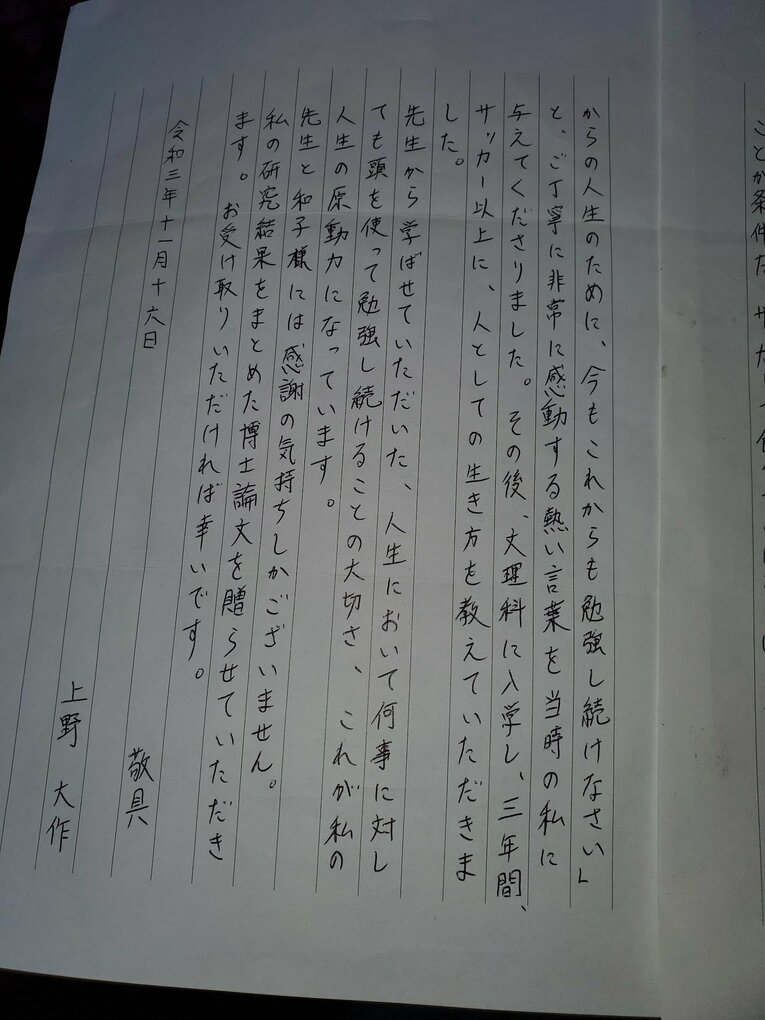 からの人生のために、今もこれからも勉強し続けなさい」
と、ご丁寧に非常に感動する熱い言葉を当時の私に
与えてくださりました。その後、文理科に入学し、三年間、
サッカー以上に、人としての生き方を教えていただきま
した。
先生から学ばせていただいた、人生において何事に対し
ても頭を使って勉強し続けることの大切さ、これが私の
人生の原動力になっています。
先生と和子様には感謝の気持ちしかございません。
私の研究結果をまとめた博士論文を贈らせていただき
ます。お受け取りいただければ幸いです。
令和三年十一月十六日
敬具
上野 大作